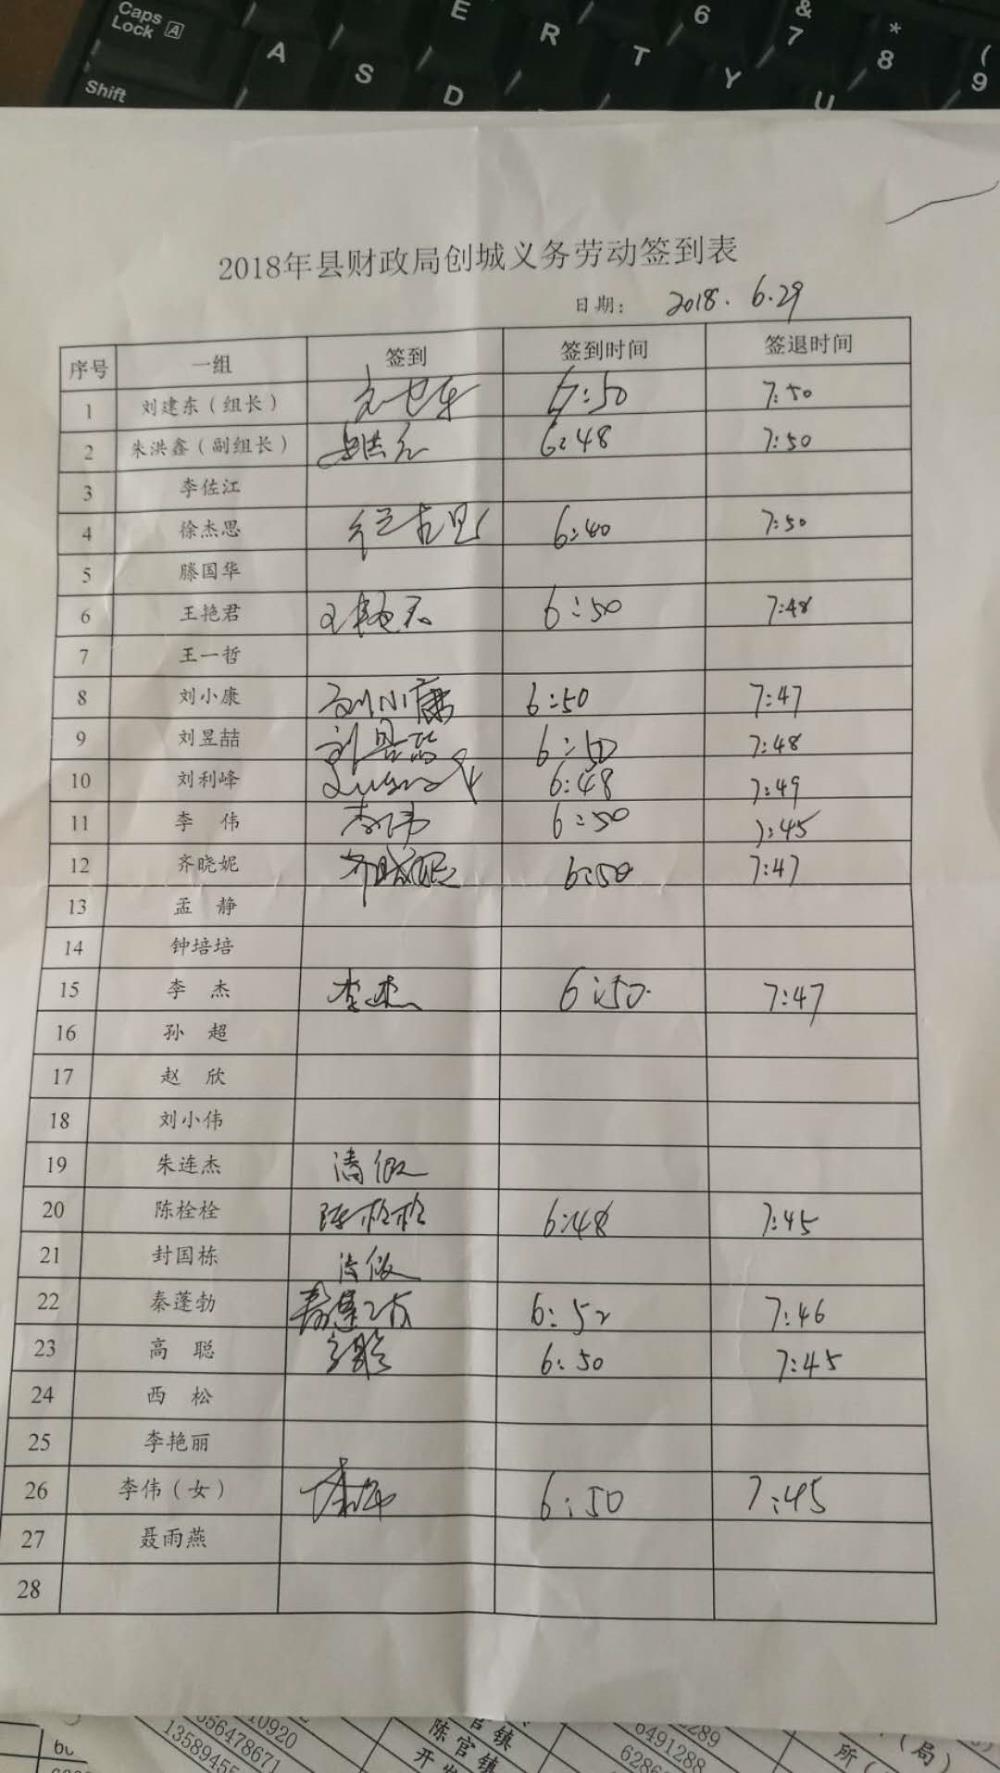 Caps Lock A
E
R
6
& 7
* 8
( 9
Shift
A
S
D
T
Y
U
2018年县财政局创城义务劳动签到表
日期: 2018.6.29
序号 一组 签到 签到时间 签退时间
1 刘建东(组长) 6:50 7:50
2 朱洪鑫(副组长) 6:48 7:50
3 李佐江
4 徐杰思 徐杰思 6:40 7:50
5 滕国华
6 王艳君 王艳君 6:50 7:48
7 王一哲
8 刘小康 刘小康 6:50 7:47
9 刘昱喆 刘昱喆 6:50 7:48
10 刘利峰 6:48 7:49
11 李 伟 李伟 6:50 7:45
12 齐晓妮 齐晓妮 6:50 7:47
13 孟 静
14 钟培培
15 李 杰 李杰 6:50 7:47
16 孙 超
17 赵 欣
18 刘小伟
19 朱连杰 请假
20 陈栓栓 陈栓栓 6:48 7:45
21 封国栋 请假
22 秦蓬勃 秦蓬勃 6:52 7:46
23 高 聪 高聪 6:50 7:45
24 西 松
25 李艳丽
26 李伟(女) 李伟 6:50 7:45
27 聂雨燕
28
10920
56478671
13589455
官镇
陈官镇
289
6491288
6286
(局)
所(